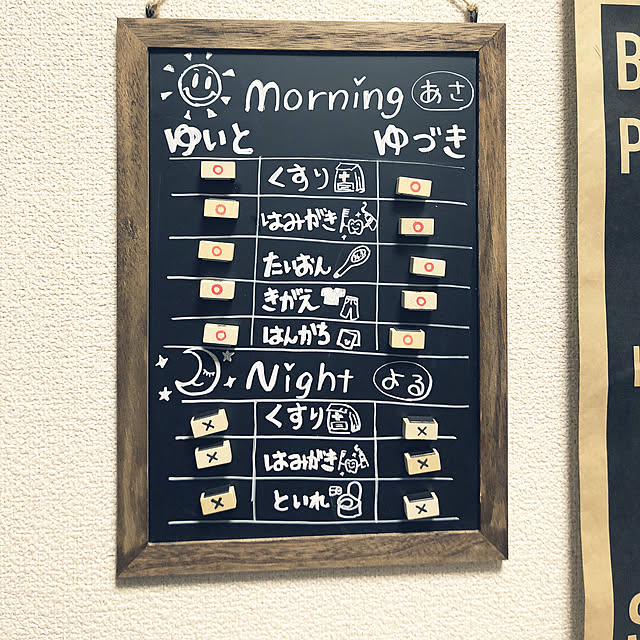 Morning あさ
ゆいと ゆづき
○ くすり ○
○ はみがき ○
○ たいおん ○
○ きがえ ○
○ はんかち ○
Night よる
× くすり ×
× はみがき ×
× といれ ×
B
P